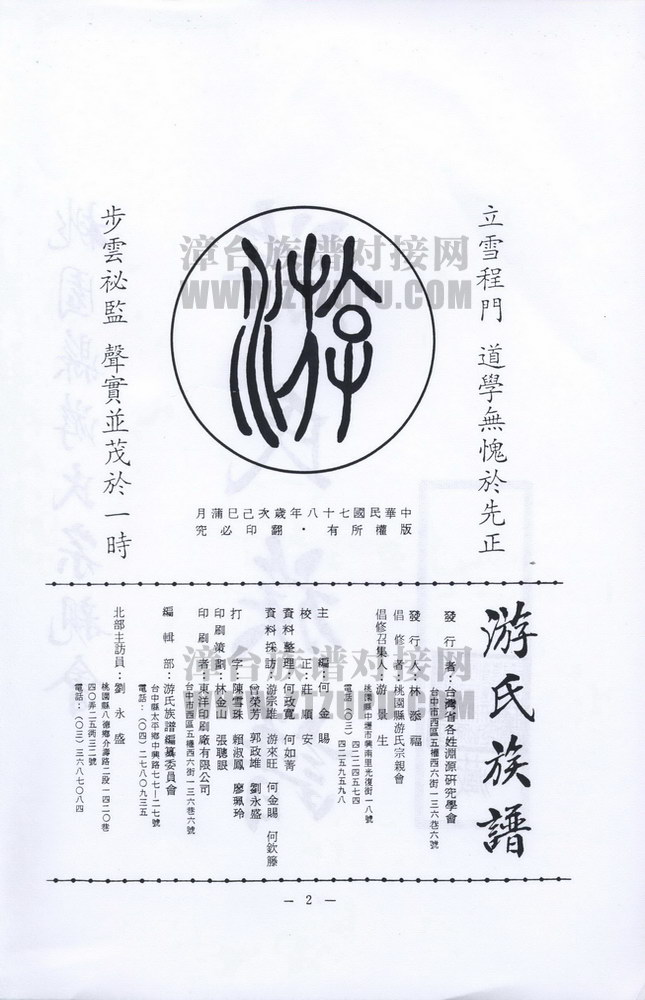 立雪程門 道學無愧於先正
游
步雲祕監 聲實並茂於一時
中華民國七十八年歲次己巳蒲月
版權所有·翻印必究
漳台族谱对接网
WWW.ZTZUPU.COM
游氏族譜
發行者：台灣省各姓淵源研究學會
台中市西區五權西六街一三六巷六號
發行人：林添福
倡修者：桃園縣游氏宗親會
倡修召集人：游景生
桃園縣中壢市興南里光復街一八號
電話：（○三）四二二四五七四
四二五九五九八
主編：何金賜
校正：莊順安
資料整理：何政寬 何如菁
資料採訪：游宗雄 游來旺 何金賜 何欽籐
曾榮芳 郭政雄 劉永盛
打字：陳雪珠 賴淑鳳 廖珮玲
印刷策劃：林金山 張聰眼
印刷者：東洋印刷廠有限公司
台中市西區五權西六街一三六巷六號
編輯部：游氏族譜編纂委員會
台中縣太平鄉中興路七七—二七號
電話：（○四）二七八○九三五
北部主訪員：劉永盛
桃園縣八德鄉介壽路二段一四二○巷
四○弄二五衖三二號
電話：（○三）三六八七○八四
漳台族谱对接网
— 2 —